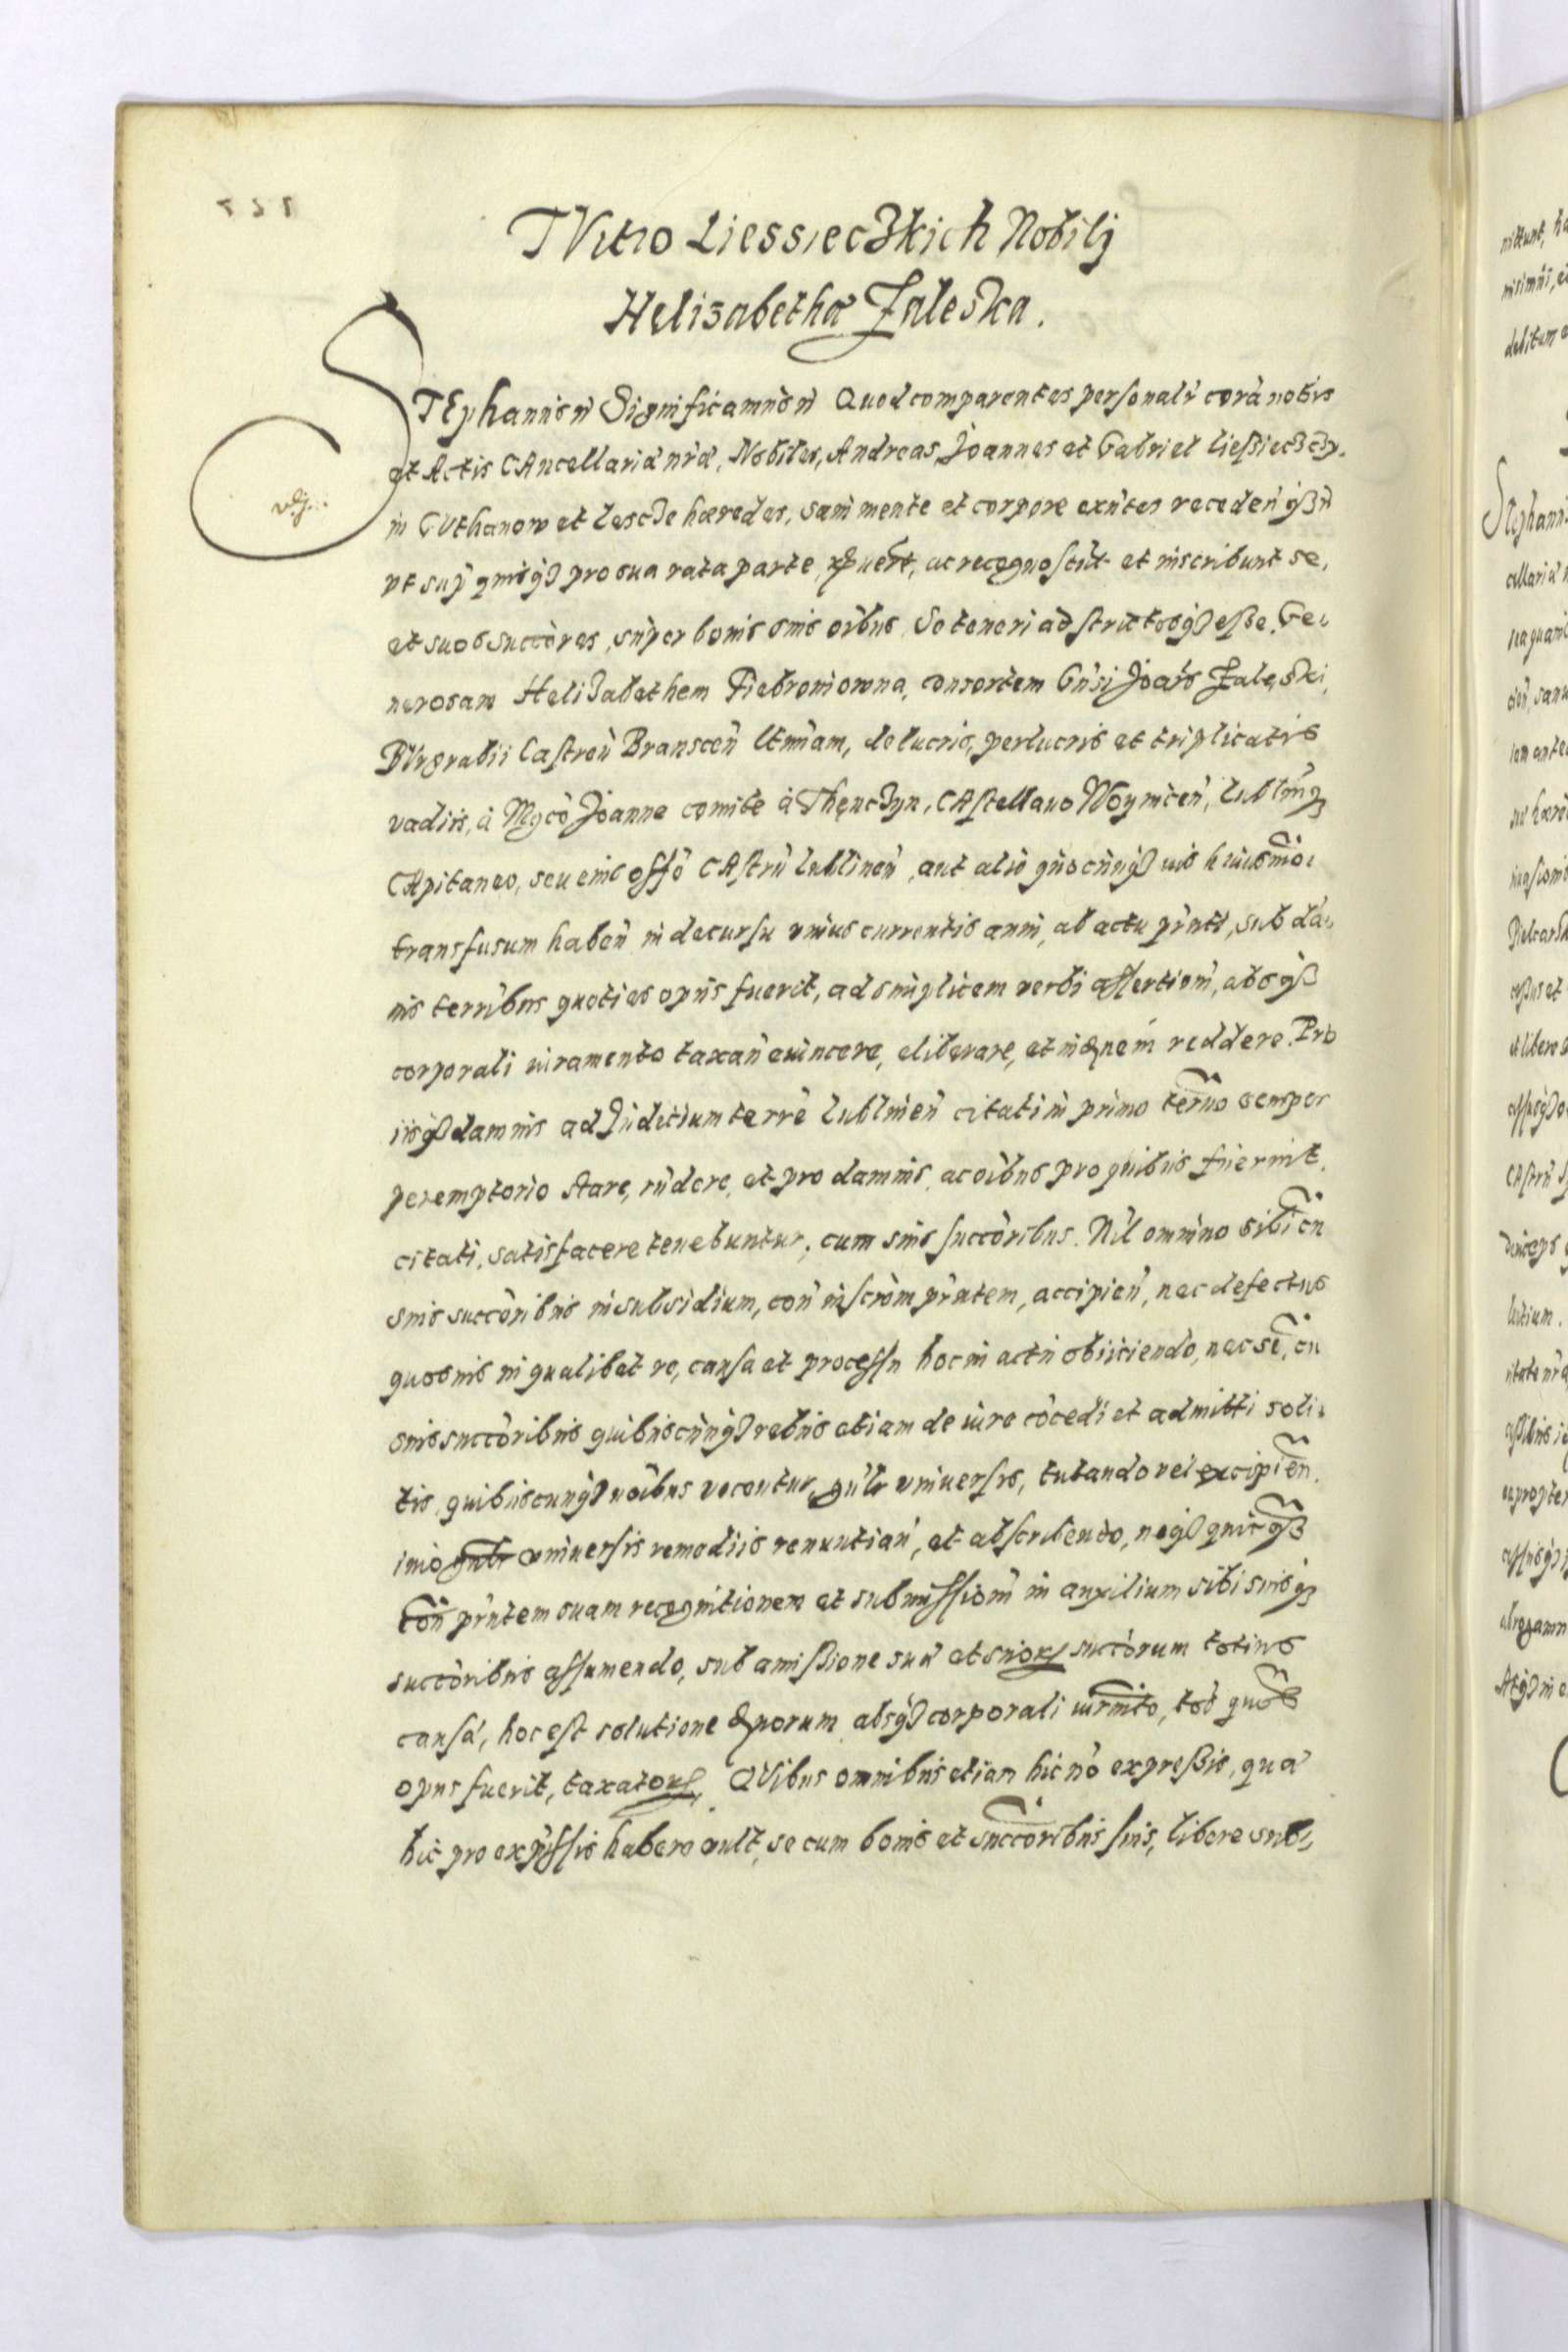 TVitio Liessieczkich Nobilj
Helizabethæ Zaleska.
STEphannus rć Significamus rć Quod comparentes personalr̃ corã nobis
et Actis CAncellariæ nr̃æ, Nobiles, Andreas, Joannes et Gabriel Liessieczczy.
in GVthanow et Lescze hæredes, sani mente et corpore exñtes receden̄ qȝ rć
vt sup̃ quisqȝ pro sua rata parte, ac recognoscũt et inscribunt se,
et suos succ̃ores, super bonis suis oĩbus Se teneri adstrictosqȝ esse, Ge-
nerosam Helizabethem Piebroniowna, consortem Gñsi Joañs Zaleski,
BVrgrabii Castreñ Bransceñ Vtriñam, de lucris, perlucris et triplicatis
vadiis, à Mg̃co Joanne comite à Thenczyn, CAstellano Woyniceñ, Lublinẽqȝ
CApitaneo, seu eius offõ CAstrñ Lublineñ, aut alio quocunqȝ iuris huiusmõi
transfusum habeñ in decursu vnius currentis anni, ab actu pr̃nti, sub dã-
nis terr̃ibus quoties opus fuerit, ad simplicem verbi assertioñ, absqȝ
corporali iuramento taxañ euincere, eliberare, et indẽnem reddere. Pro
iisqȝ damnis ad Juditium terr̃e Lublineñ citati in primo term̃o semper
peremptorio stare, rñdere, et pro damnis, ac oĩbus pro quibus fuerint.
citati, satisfacere tenebuntur, cum suis succ̃oribus. Nil omnino sibi cũ
suis succ̃oribus in subsidium, coñ inscrõm pr̃ntem, accipieñ, nec defectus
quosuis in qualibet re, causa et processu hoc in actu obiiciendo, nec se, cũ
suis succ̃oribus quibuscunqȝ rebus etiam de iure cõcedi et admitti soli-
tis, quibuscunqȝ noĩbus vocentur, gñlr vniuersis, tutando vel excipieñ.
imo vniuersis remediis renuntiañ, et abscribendo, neqȝ quicqȝ
coñ pr̃ntem suam recognitionem et submissioñ in auxilium sibi suisqȝ
succ̃oribus assumendo, sub amissione suæ et suorum succ̃orum totius
causæ, hoc est solutione dãnorum absqȝ corporali iurm̃to, tot quot
opus fuerit, taxatorum, QVibus omnibus etiam hic nõ expressis, quæ
hic pro exp̃ssis habere vult, se cum bonis et succ̃oribus suis, libere sub-